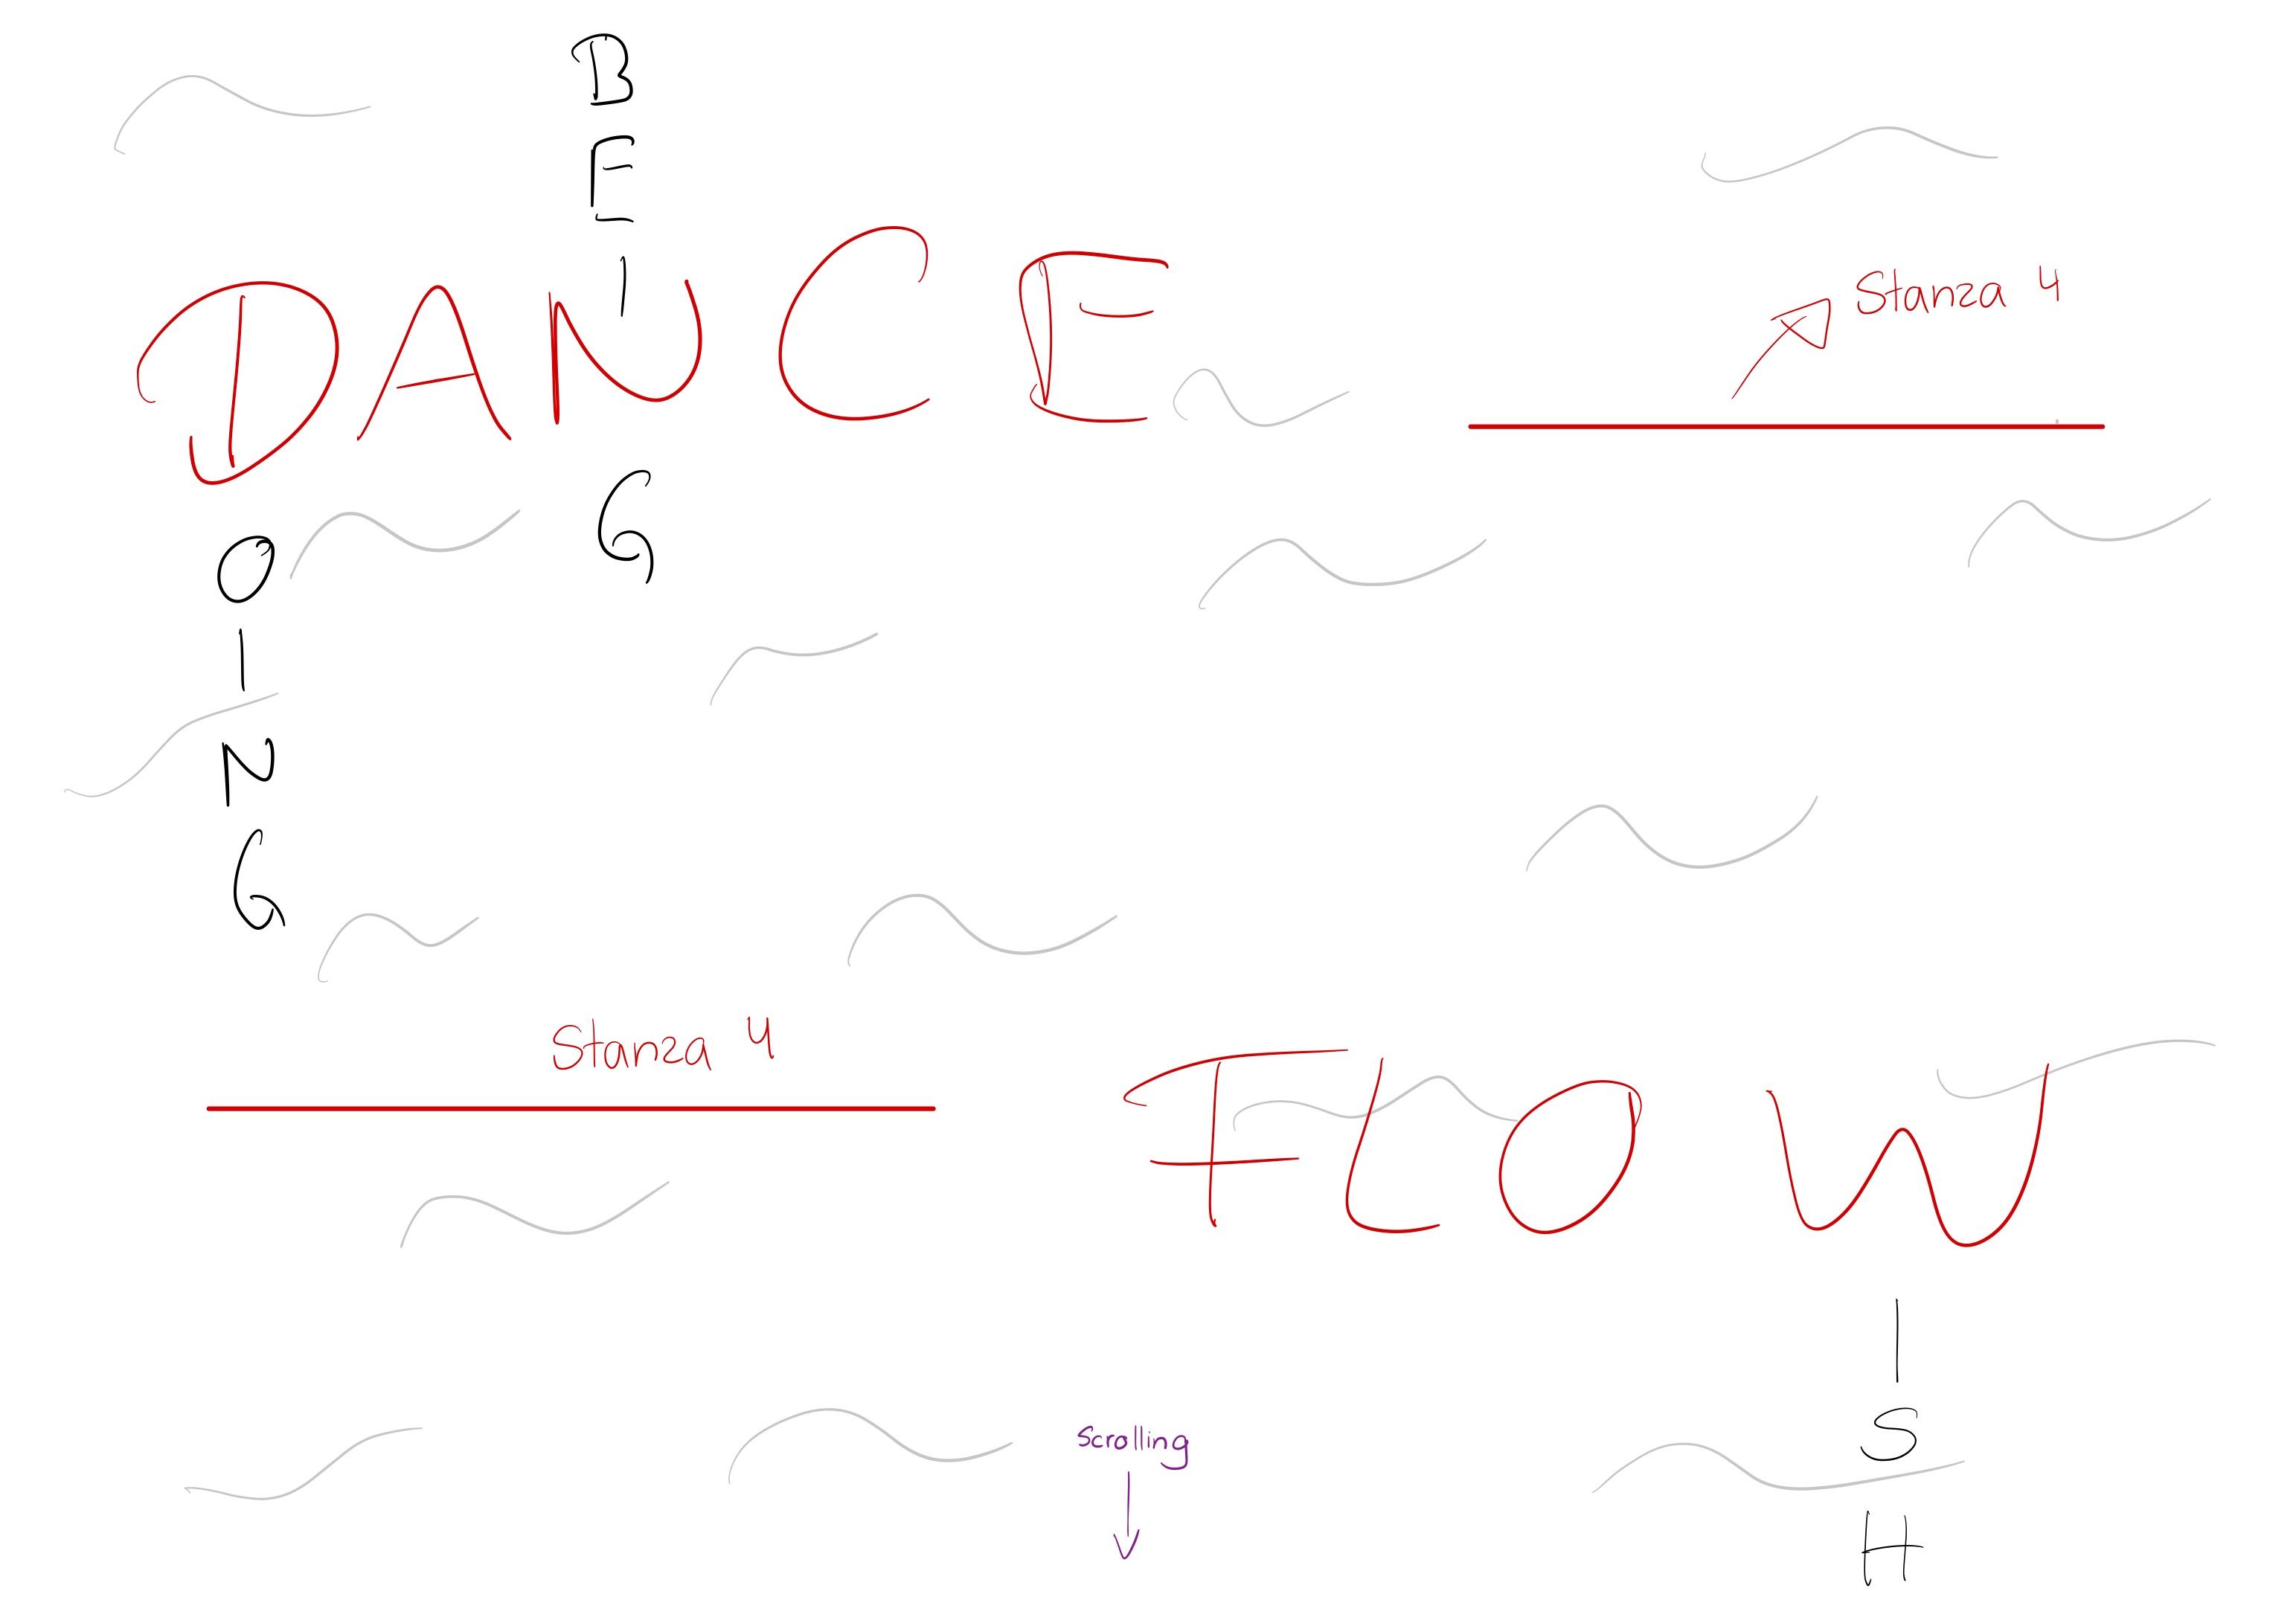 BEING
DANCE
Stanza 4
DOING
Stanza 4
FLOW
WISH
Scrolling